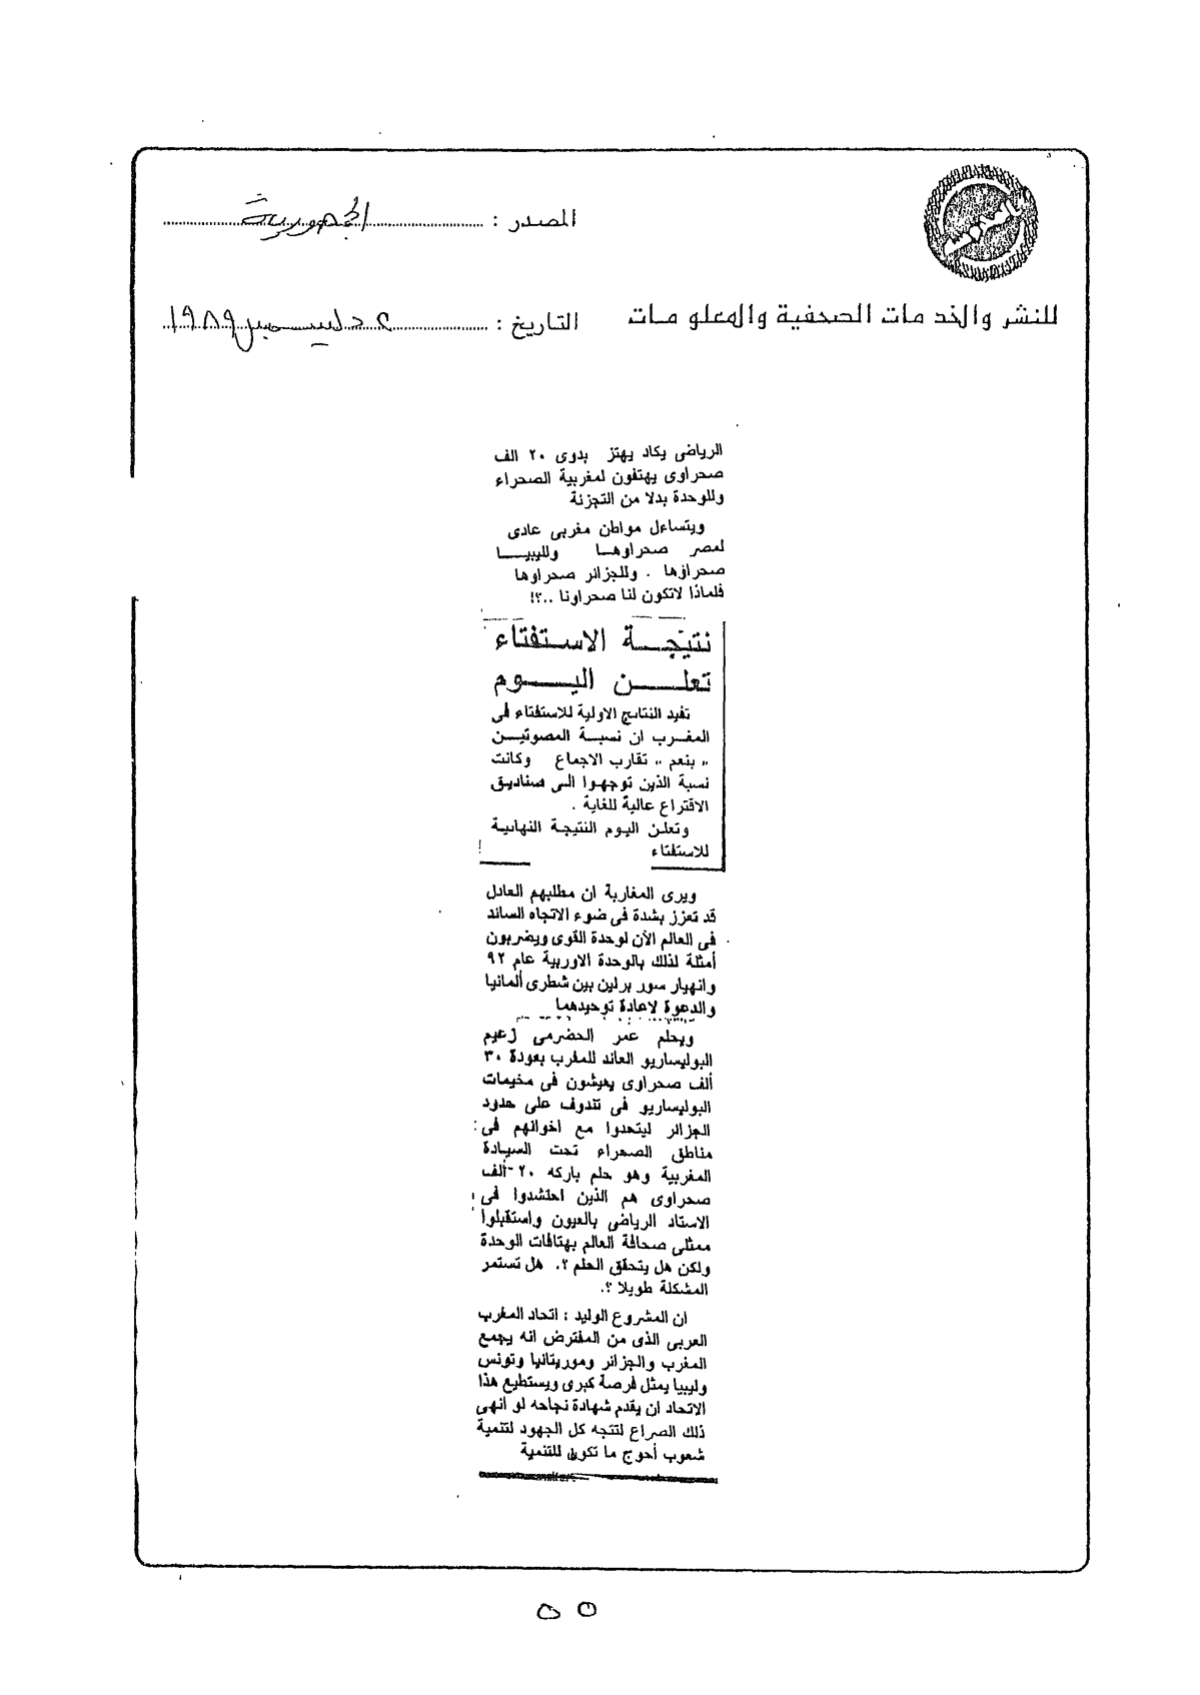 المصدر : الجمهورية
للنشر والخد مات الصحفية والمعلو مات
التاريخ : ٢ ديسمبر ١٩٨٩
الرياضى يكاد يهتز بدوى ٢٠ الف
صحراوى يهتفون لمغربية الصحراء
وللوحدة بدلا من التجزئة
ويتساءل مواطن مغربى عادى
لمصر صحراوها ولليبيا
صحراؤها . وللجزائر صحراوها
فلماذا لاتكون لنا صحراونا ..؟!
نتيجة الاستفتاء
تعلن اليوم
تفيد النتائج الاولية للاستفتاء فى
المغرب ان نسبة المصوتين
" بنعم " تقارب الاجماع وكانت
نسبة الذين توجهوا الى صناديق
الاقتراع عالية للغاية .
وتعلن اليوم النتيجة النهائية
للاستفتاء
ويرى المغاربة ان مطلبهم العادل
قد تعزز بشدة فى ضوء الاتجاه السائد
فى العالم الآن لوحدة القوى ويضربون
أمثلة لذلك بالوحدة الاوربية عام ٩٢
وانهيار سور برلين بين شطرى ألمانيا
والدعوة لاعادة توحيدهما
ويحلم عمر الحضرمى زعيم
البوليساريو العائد للمغرب بعودة ٣٠
ألف صحراوى يعيشون فى مخيمات
البوليساريو فى تندوف على حدود
الجزائر ليتحدوا مع اخوانهم فى
مناطق الصحراء تحت السيادة
المغربية وهو حلم باركه ٢٠ ألف
صحراوى هم الذين احتشدوا فى
الاستاد الرياضى بالعيون واستقبلوا
ممثلى صحافة العالم بهتافات الوحدة
ولكن هل يتحقق الحلم ؟. هل تستمر
المشكلة طويلا ؟.
ان المشروع الوليد : اتحاد المغرب
العربى الذى من المفترض انه يجمع
المغرب والجزائر وموريتانيا وتونس
وليبيا يمثل فرصة كبرى ويستطيع هذا
الاتحاد ان يقدم شهادة نجاحه لو انهى
ذلك الصراع لتتجه كل الجهود لتنمية
شعوب أحوج ما تكون للتنمية